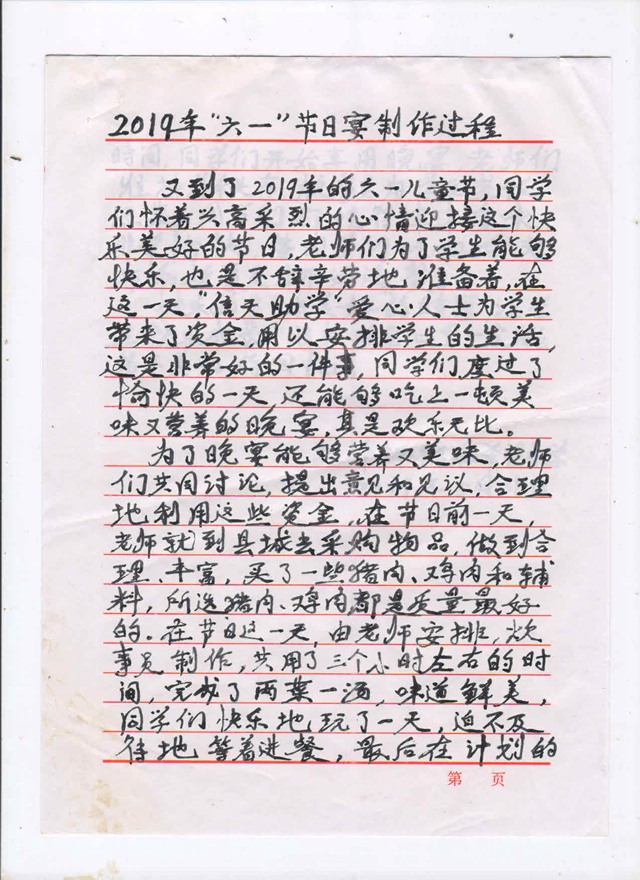 2019年“六一”节日宴制作过程
又到了2019年的六一儿童节，同学
们怀着兴高采烈的心情迎接这个快
乐美好的节日，老师们为了学生能够
快乐，也是不辞辛劳地准备着，在
这一天，“信天助学”爱心人士为学生
带来了资金，用以安排学生的生活，
这是非常好的一件事，同学们度过了
愉快的一天，还能够吃上一顿美
味又营养的晚宴，真是欢乐无比。
为了晚宴能够营养又美味，老师
们共同讨论，提出意见和见议，合理
地利用这些资金，在节日前一天，
老师就到县城去采购物品，做到合
理、丰富，买了一些猪肉、鸡肉和辅
料，所选猪肉、鸡肉都是质量最好
的。在节日这一天，由老师安排，炊
事员制作，共用了三个小时左右的时
间，完成了两菜一汤，味道鲜美，
同学们快乐地玩了一天，迫不及
待地等着进餐，最后在计划的
第 页